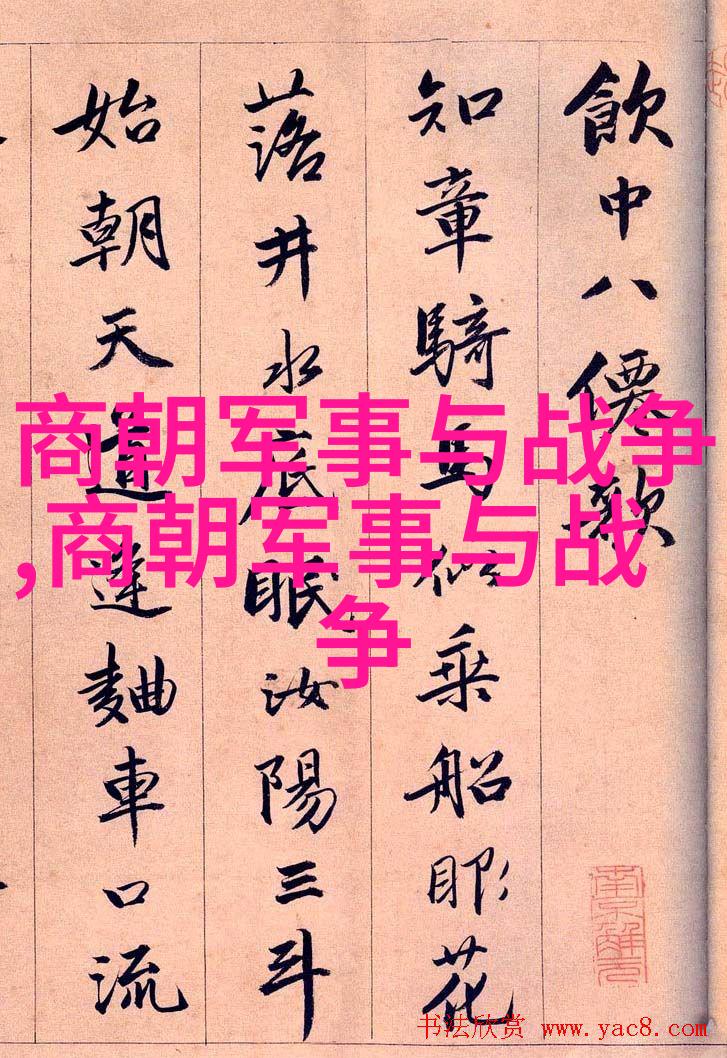 飲中八僊歌
知章騎馬似乘船眼花
落井水底眠汝陽三斗
始朝天道逢麯車口流
南京解元
商朝军事与战争
,商朝军事与战
争
书法欣赏 www.yac8.com